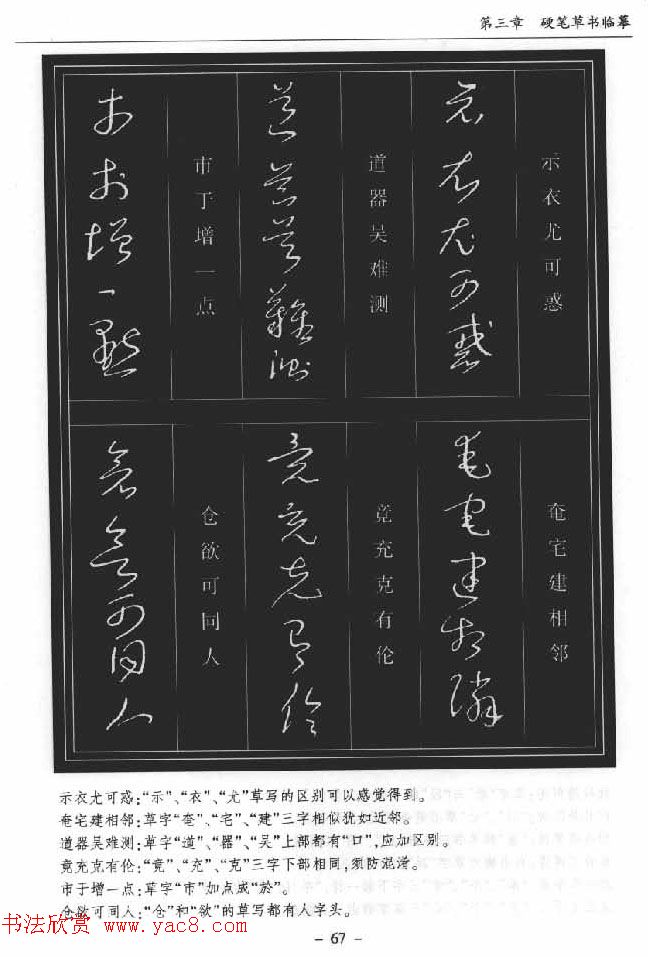 第三章 硬笔草书临摹
示衣尤可惑
示衣尤可惑
道器吴难测
道器吴難測
市于增一点
市於增一點
奄宅建相邻
奄宅建相隣
竟充克有伦
竟充克有倫
仓欲可同人
倉欲可同人
示衣尤可惑:“示”、“衣”、“尤”草写的区别可以感觉得到。
奄宅建相邻:草字“奄”、“宅”、“建”三字相似犹如近邻。
道器吴难测:草字“道”、“器”、“吴”上部都有“口”,应加区别。
竟充克有伦:“竟”、“充”、“克”三字下部相同,须防混淆。
市于增一点:草字“市”加点成“於”。
仓欲可同人:“仓”和“欲”的草写都有人字头。
书法欣赏 www.yac8.com
- 67 -